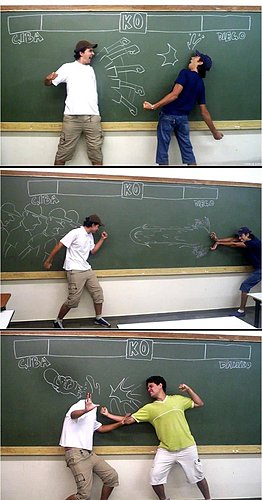 KO
GIBA DIEGO
KO
GIBA DIEGO
KO
GIBA DANILO